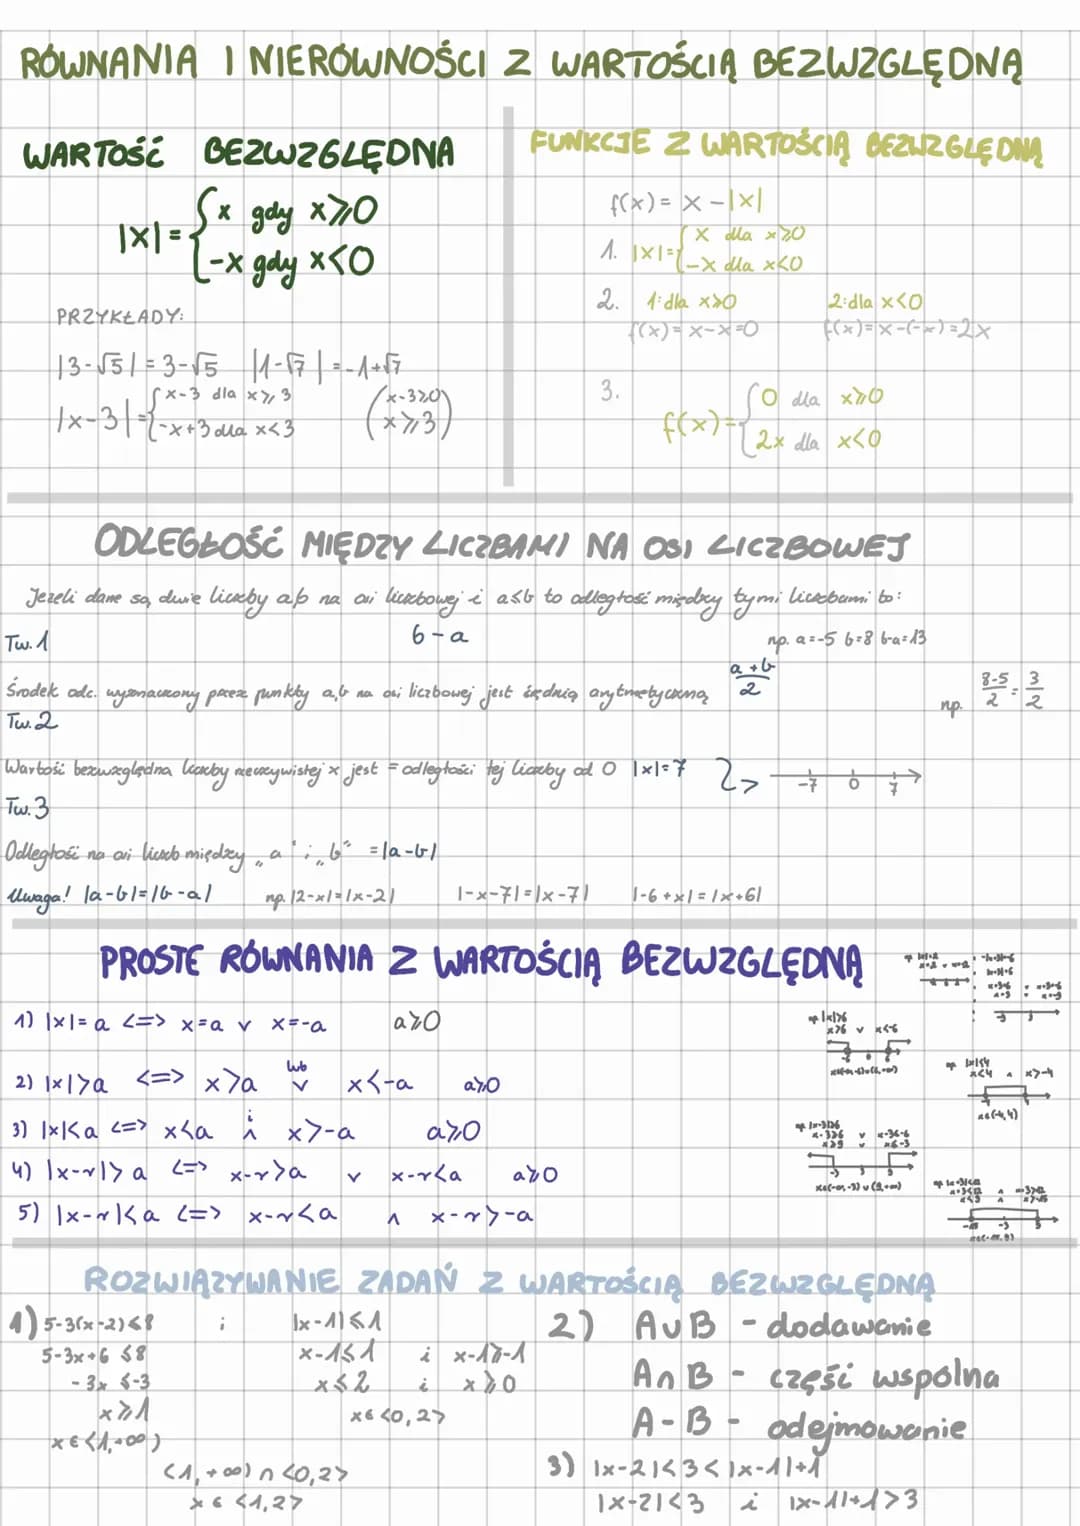 RÓWNANIA I NIERÓWNOŚCI Z WARTOŚCIĄ BEZWZGLĘDNĄ
WARTOŚĆ BEZWZGLĘDNA
|x|= { x gdy x⩾0
-x gdy x<0
PRZYKŁADY:
|3-√5| = 3-√5 |1-√7| = -1+√7
|x-3| = { x-3 dla x⩾3
-x+3 dla x<3
(x-3⩾0
x⩾3)
FUNKCJE Z WARTOŚCIĄ BEZWZGLĘDNĄ
f(x) = x -|x|
1. |x|= { x dla x⩾0
-x dla x<0
2. 1: dla x⩾0 2: dla x<0
f(x)= x-x=0 f(x)=x-(-x)=2x
3.
f(x)= { 0 dla x⩾0
2x dla x<0
ODLEGŁOŚĆ MIĘDZY LICZBAMI NA OSI LICZBOWEJ
Jeżeli dane są dwie liczby a,b na osi liczbowej i a≤b to odległość między tymi liczbami to:
Tw.1 b-a np. a=-5 b=8 b-a=13
Środek odc. wyznaczony przez punkty a,b na osi liczbowej jest średnią arytmetyczną a+b/2 np. 8-5/2 = 3/2
Tw.2
Wartość bezwzględna liczby rzeczywistej x jest = odległości tej liczby od 0 |x|=7 -7 0 7
Tw.3
Odległość na osi liczb między „a" i „b" = |a-b|
Uwaga! |a-b|=|b-a| np. |2-x|=|x-2| |-x-7|=|x-7| |-6+x|=|x+6|
PROSTE RÓWNANIA Z WARTOŚCIĄ BEZWZGLĘDNĄ
1) |x|=a <=> x=a ∨ x=-a a⩾0
2) |x|>a <=> x>a lub ∨ x<-a a⩾0
3) |x|<a <=> x<a i ∧ x>-a a⩾0
4) |x-r|>a <=> x-r>a ∨ x-r<a a⩾0
5) |x-r|<a <=> x-r<a ∧ x-r>-a
np |x|>6
x>6 ∨ x<-6
np |x|<4
x<4 ∧ x>-4
x∈(-4,4)
x∈(-∞,-3)∪(9,+∞)
ROZWIĄZYWANIE ZADAŃ Z WARTOŚCIĄ BEZWZGLĘDNĄ
1) 5-3(x-2)≤8 i |x-1|≤1
5-3x+6 ≤8 x-1≤1 i x-1⩾-1
-3x ≤-3 x≤2 i x⩾0
x⩾1 x∈<0,2>
x∈<1,+∞)
<1,+∞)∩<0,2>
x∈<1,2>
2) A∪B - dodawanie
A∩B - część wspólna
A-B - odejmowanie
3) |x-2|<3<|x-1|+1
|x-2|<3 i |x-1|+1>3